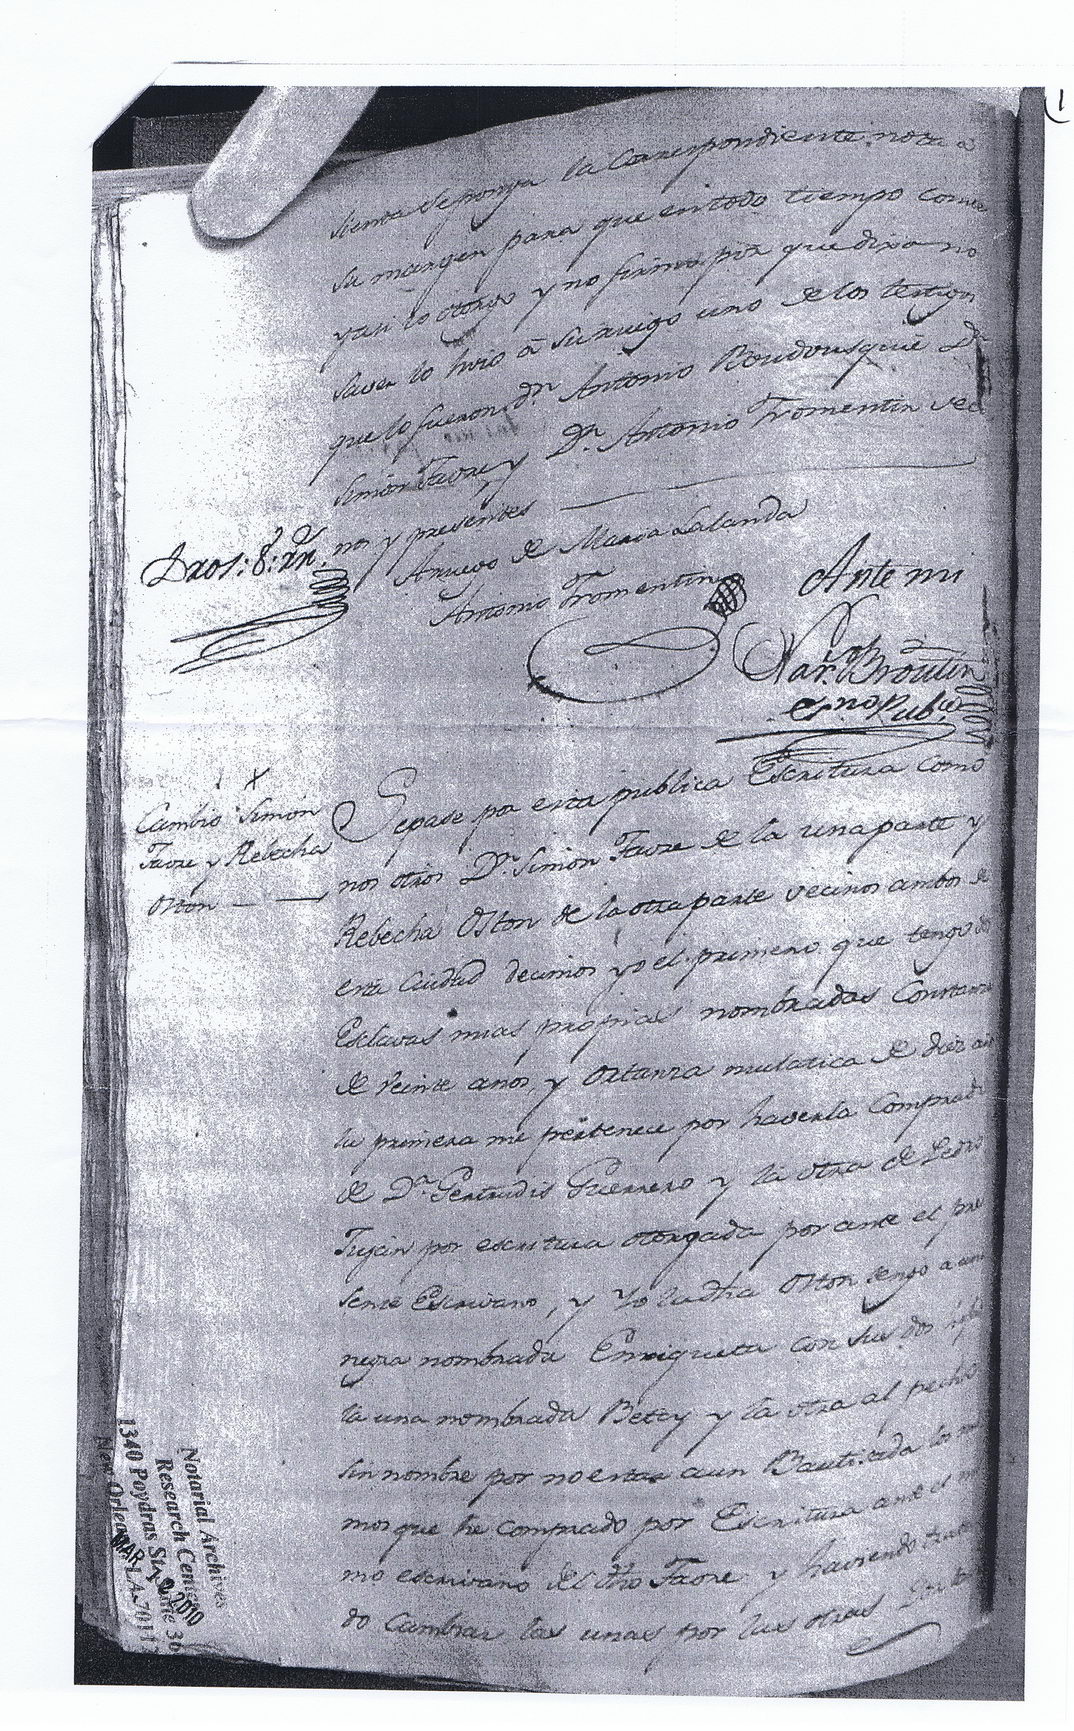 (1
se ponga la Correspondiente nota a
su margen para que en todo tiempo conste
y asi lo otorgo y no firmó por que dixo no
saver lo hizo à su ruego uno de los testigos
que lo fueron Dn. Antonio Boudousquie Dn
Simon Favre y Dn. Antonio Fromentin veci
nos y presentes
Dros: 8: rrs.
A ruego de Maria Lalanda
Antonio Fromentin
Ante mi
Nar. Broutin
esno Pubco
Cambio Simon
Favre y Rebecha
Oston
Sepase por esta publica Escritura como
nos otros Dn. Simon Favre de la una parte y
Rebecha Oston de la otra parte vecinos ambos de
esta Ciudad decimos yo el primero que tengo dos
Esclavas mias propias nombradas Constanza
de veinte anos, y Ortanza mulatica de diez añ
la primera me pertenece por haverla Comprad
de Da. Gertrudis Guerrero y la otra de Pedro
por escritura otorgada por ante el pre
sente Escrivano, y Yo la dha Oston tengo a una
negra nombrada Enriqueta con sus dos hijas
la una nombrada Betcy y la otra al pecho
sin nombre por no estar aun Bautizada los m
mos que he comprado por Escritura ante el mis
mo escrivano del dho Favre y haviendo trata
do Cambiar las unas por las otras
Notarial Archives
Research Center
1340 Poydras St., Suite 36
New Orleans, LA 7011
MAR 2010